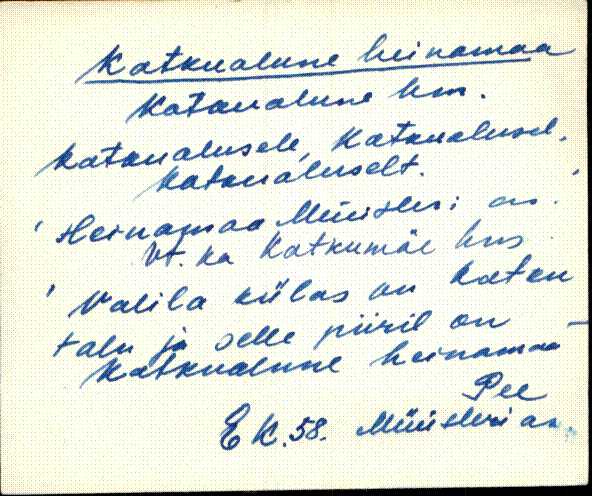 Katkualune heinamaa
Katkualune hm.
Katkualusele, Katkualusel,
Katkualuselt.
'Heinamaa Müüsleri as.'
Vt. ka Katkumäe hms
'Valila külas on Katku
talu ja selle piiril on –
Katkualune heinamaa
Pee
EK. 58. Müüsleri as.